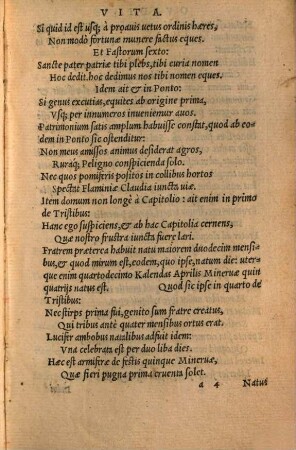 VITA.
Si quid id est usq; à proauis uetus ordinis hæres,
Non modò fortunæ munere factus eques.
Et Fastorum sexto:
Sancte pater patriæ tibi plebs, tibi curia nomen
Hoc dedit. hoc dedimus nos tibi nomen eques.
Idem ait & in Ponto:
Si genus excutias, equites ab origine prima,
Vsq; per innumeros inuenientur auos.
Patrimonium satis amplum habuisse constat, quod ab eo-
dem in Ponto sic ostenditur:
Non meus amissos animus desiderat agros,
Ruraq; Peligno conspicienda solo.
Nec quos pomiferis positos in collibus hortos
Spectat Flaminiæ Claudia iuncta uiæ.
Item domum non longè à Capitolio: ait enim in primo
de Tristibus:
Hanc ego suspiciens, & ab hac Capitolia cernens,
Quæ nostro frustra iuncta fuere lari.
Fratrem præterea habuit natu maiorem duodecim mensi-
bus, & quod mirum est, eodem, quo ipse, natum die: uter-
que enim quartodecimo Kalendas Aprilis Mineruæ quin
quatrijs natus est. Quod sic ipse in quarto de
Tristibus:
Nec stirps prima fui, genito sum fratre creatus,
Qui tribus antè quater mensibus ortus erat.
Lucifer ambobus natalibus adfuit idem:
Vna celebrata est per duo liba dies.
Hæc est armiferæ de festis quinque Mineruæ,
Quæ fieri pugna prima cruenta solet.
a 4 Natus